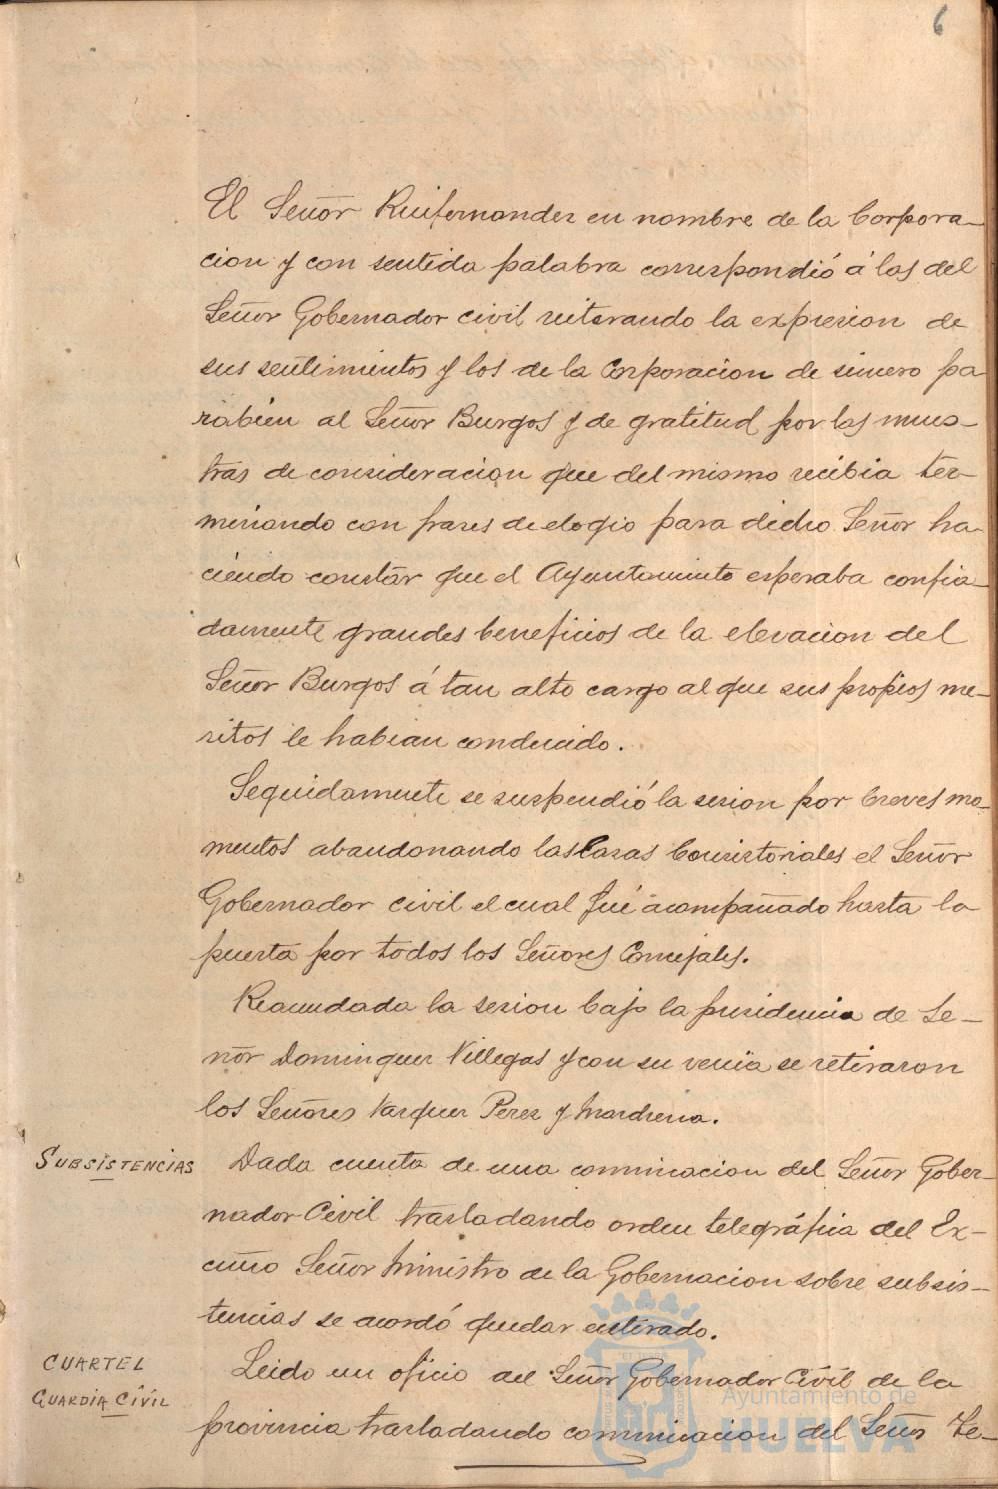 6
El Señor Ruifernandez en nombre de la Corpora-
cion y con sentida palabra correspondió á las del
Señor Gobernador civil reiterando la expresion de
sus sentimientos y los de la Corporacion de sincero pa
rabien al Señor Burgos y de gratitud por las mues-
tras de consideracion que del mismo recibia ter-
minando con frases de elogio para dicho Señor ha-
ciendo constar que el Ayuntamiento esperaba confia-
damente grandes beneficios de la elevacion del
Señor Burgos á tan alto cargo al que sus propios me-
ritos le habian conducido.
Seguidamente se suspendió la sesion por breves mo-
mentos abandonando las Casas Consistoriales el Señor
Gobernador civil el cual fué acompañado hasta la
puerta por todos los Señores Concejales.
Reanudada la sesion bajo la presidencia de Se-
ñor Dominguez Villegas y con su venia se retiraron
los Señores Vazquez Perez y Mardrena.
SUBSISTENCIAS
Dada cuenta de una comunicacion del Señor Gober-
nador Civil trasladando orden telegráfica del Ex-
cmo Señor Ministro de la Gobernacion sobre subsis-
tencias se acordó quedar enterado.
CUARTEL
GUARDIA CIVIL
Leido un oficio del Señor Gobernador Civil de la
provincia trasladando comunicacion del Señor Te-
Ayuntamiento de
HUELVA